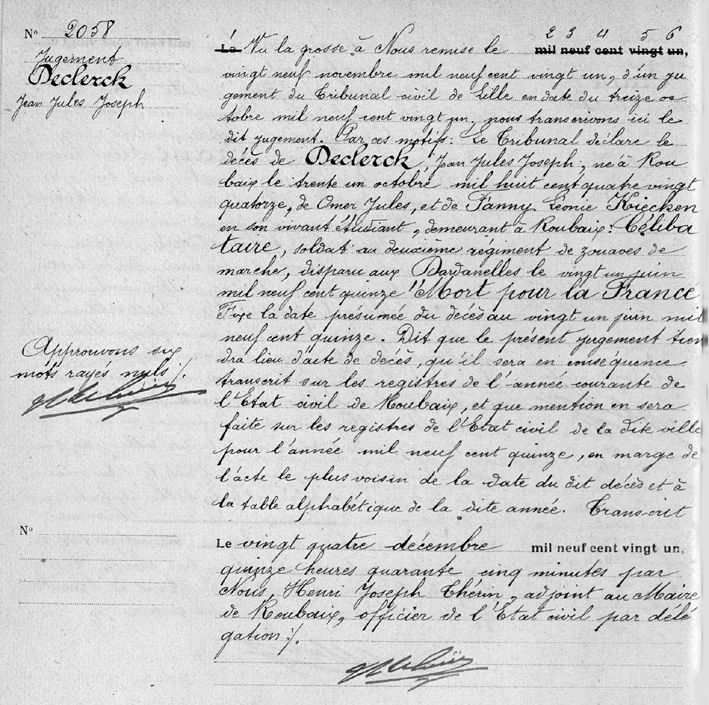 N° 2058
Jugement
Declerck
Jean Jules Joseph
2 3 4 5 6
Le Vu la grosse à Nous remise le mil neuf cent vingt un,
vingt neuf novembre mil neuf cent vingt un, d'un ju
gement du Tribunal civil de Lille en date du treize oc
tobre mil neuf cent vingt un, nous transcrivons ici le
dit jugement. Par ces motifs: Le Tribunal déclare le
décès de Declerck, Jean Jules Joseph, né à Rou
baix le trente un octobre mil huit cent quatre vingt
quatorze, de Omer Jules, et de Fanny Léonie Kiecken
en son vivant étudiant, demeurant à Roubaix. Céliba
taire, soldat au deuxième régiment de zouaves de
marche, disparu aux Dardanelles le vingt un juin
mil neuf cent quinze "Mort pour la France
Fixe la date présumée du décès au vingt un juin mil
neuf cent quinze. Dit que le présent jugement tien
dra lieu d'acte de décès, qu'il sera en conséquence
transcrit sur les registres de l'année courante de
l'Etat civil de Roubaix, et que mention en sera
faite sur les registres de l'Etat civil de la dite ville
pour l'année mil neuf cent quinze, en marge de
l'acte le plus voisin de la date du dit décès et à
la table alphabétique de la dite année. Transcrit
Approuvons six
mots rayés nuls %.
N°
Le vingt quatre décembre mil neuf cent vingt un,
quinze heures quarante cinq minutes par
Nous, Henri Joseph Thérin, adjoint au Maire
de Roubaix, officier de l'Etat civil par délé
gation %.